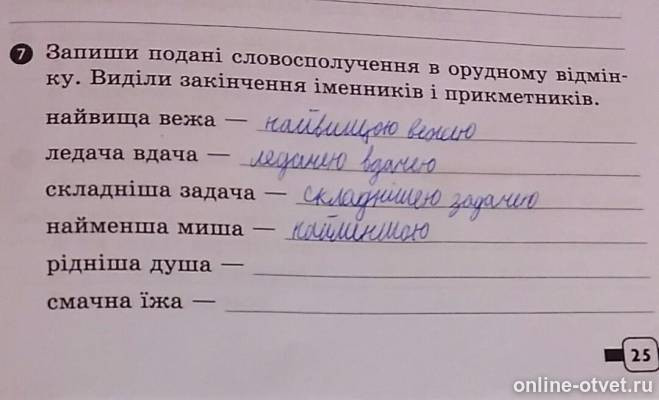 7 Запиши подані словосполучення в орудному відмін-
ку. Виділи закінчення іменників і прикметників.
найвища вежа — найвищою вежею
ледача вдача — ледачею вдачею
складніша задача — складнішею задачею
найменша миша — найменшою
рідніша душа —
смачна їжа —
25
online-otvet.ru